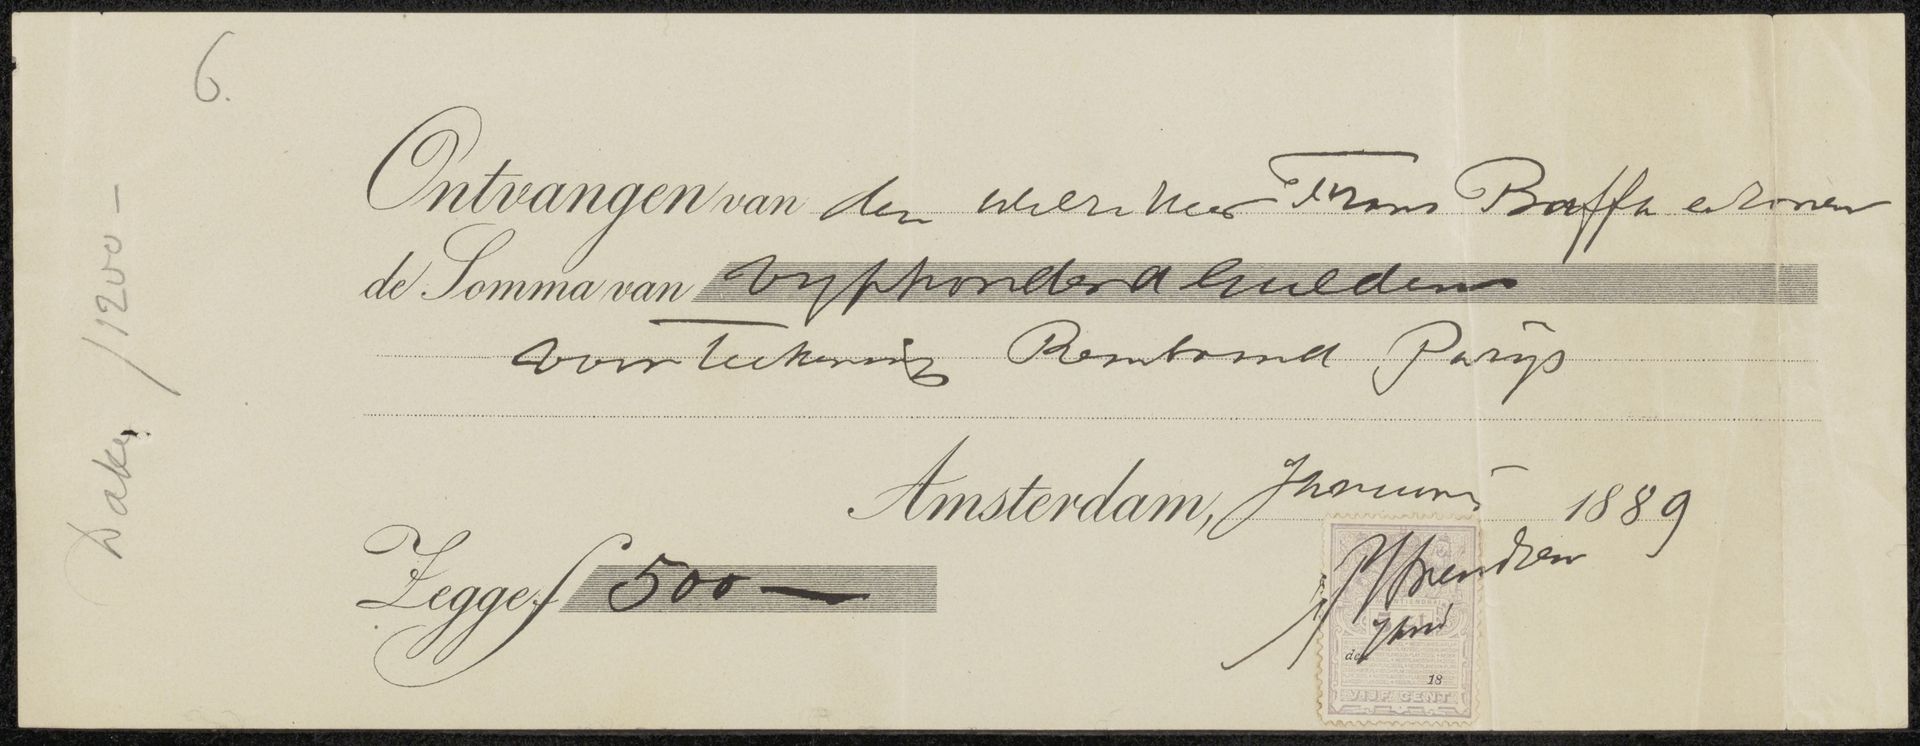 6.
Ontvangen van den weledHeer Frans Buffa en Zonen
de Somma van vyfhonderd Gulden
voor teekening Rembrand Parijs
Amsterdam, Januari 1889
Zegge f 500 —
Januari
de
18
VIJF CENT
/1200 —